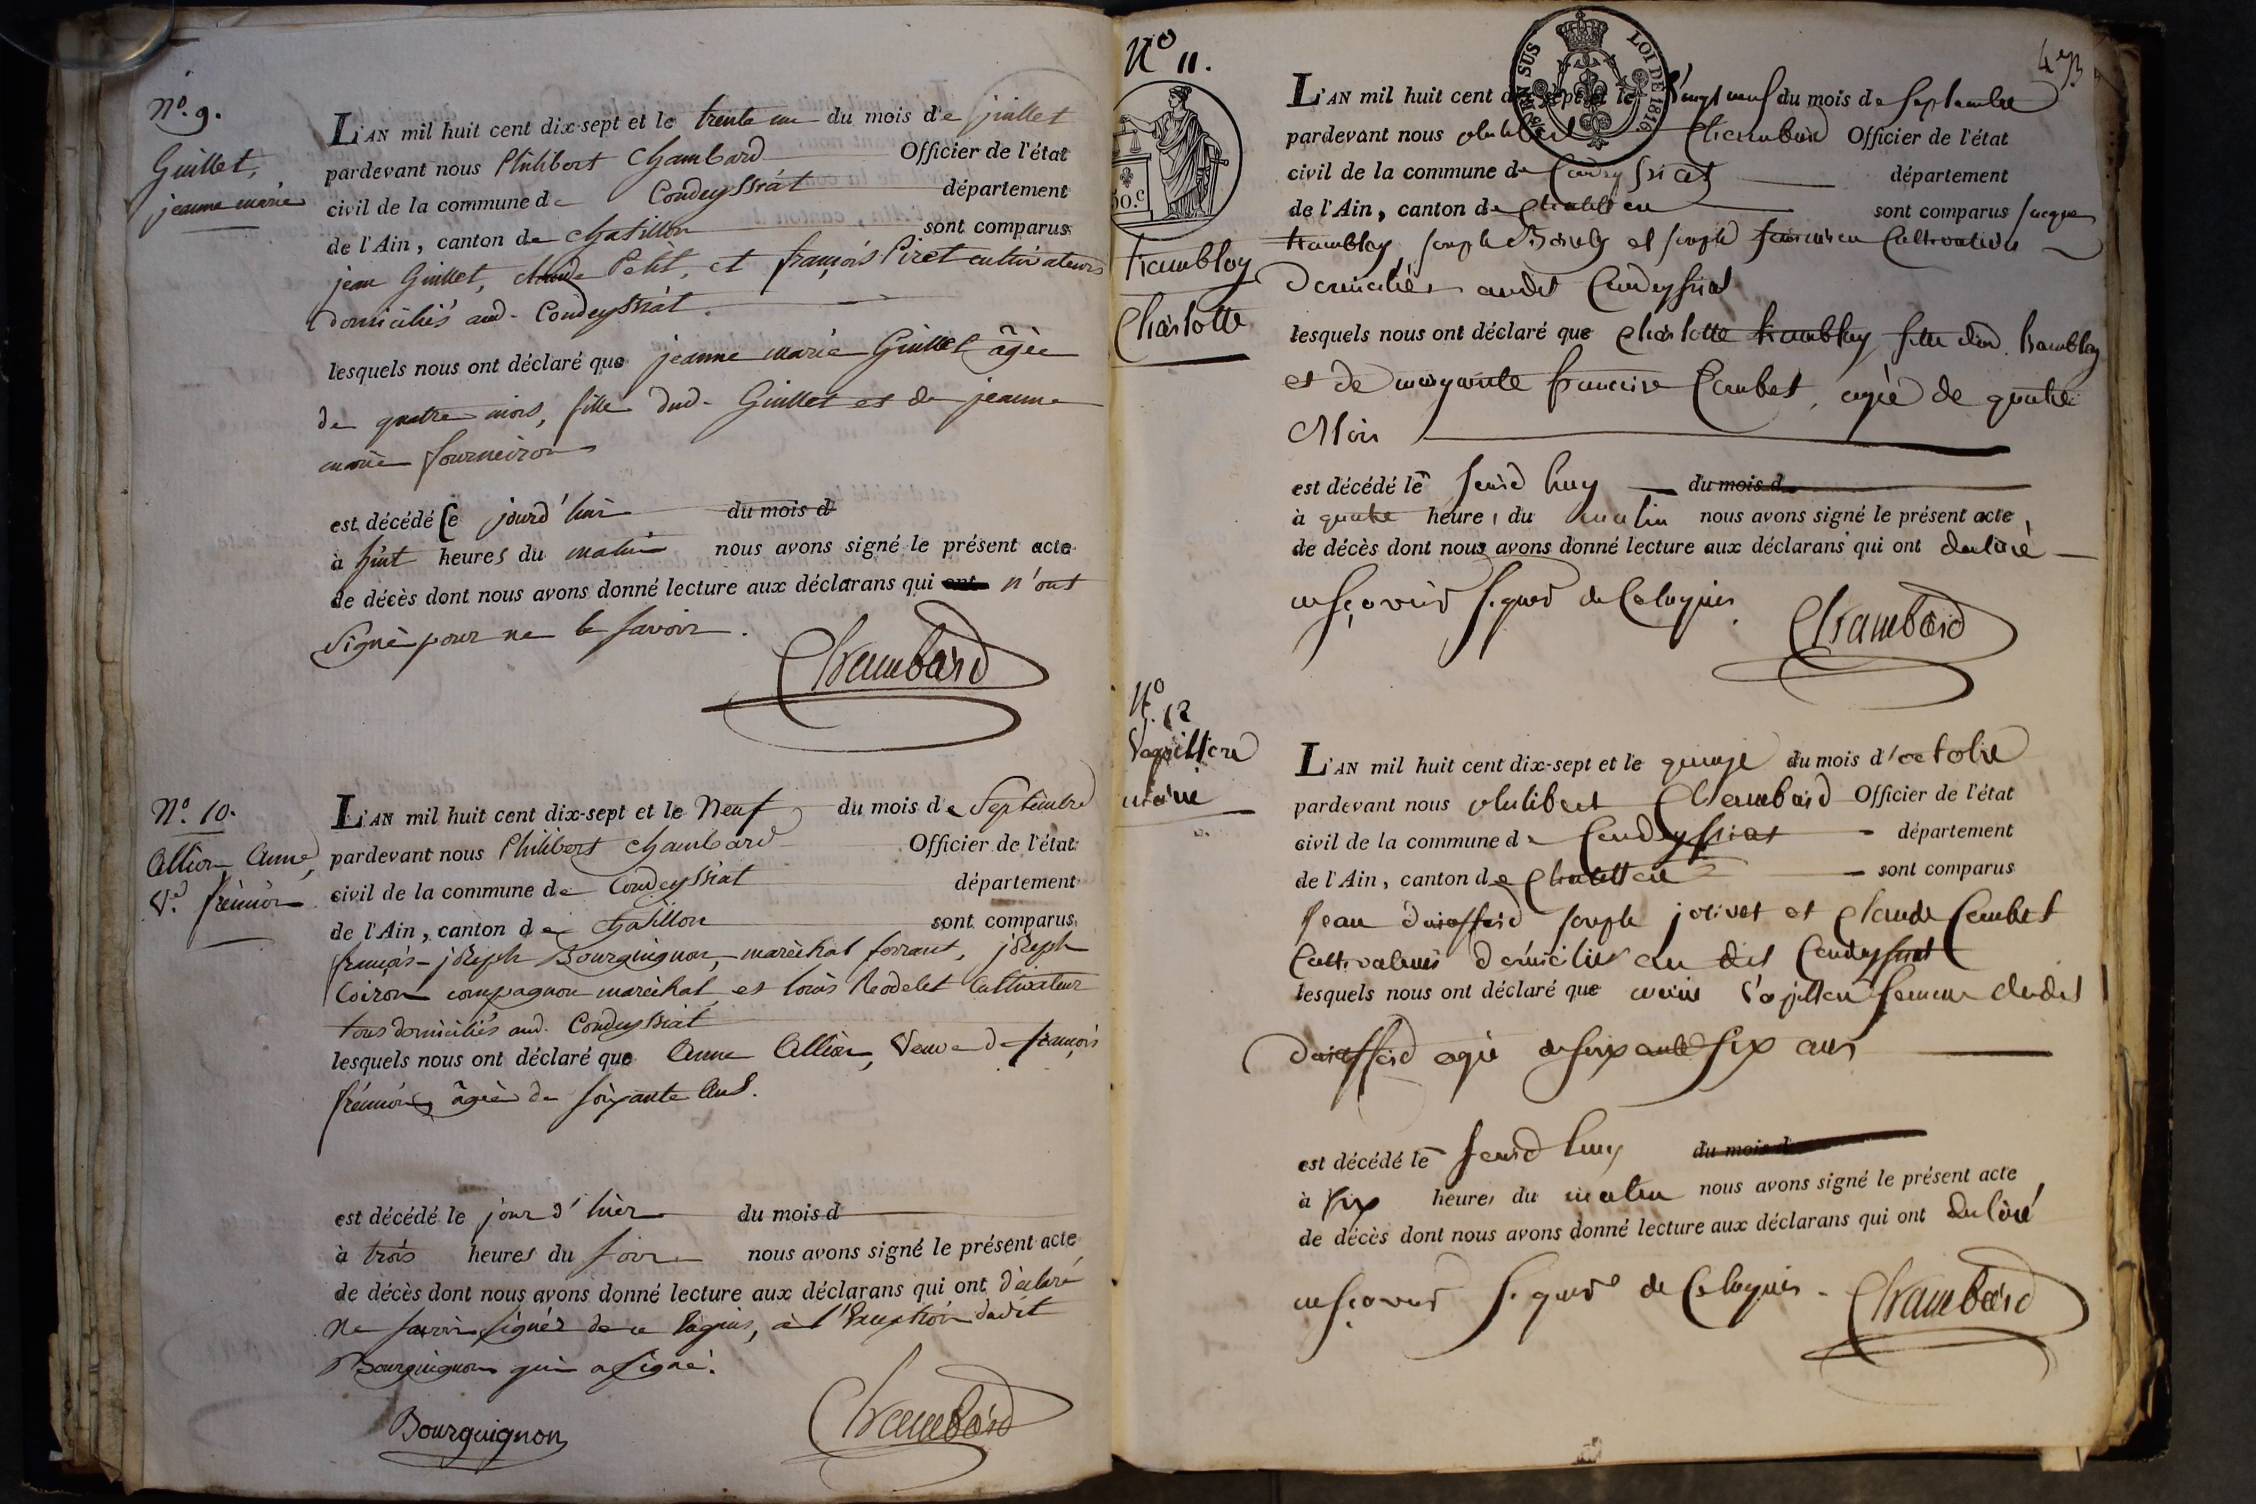 N.º 9.
Guillet,
jeanne marie
L'AN mil huit cent dix-sept et le trente un du mois de juillet
pardevant nous Philibert Chambard Officier de l'état
civil de la commune de Condeyssiat département
de l'Ain, canton de chatillon sont comparus
jean Guillet, claude Petit, et françois Piret cultivateurs
domiciliés aud. Condeyssiat.
lesquels nous ont déclaré que jeanne marie Guillet âgée
de quatre mois, fille dud. Guillet et de jeanne
marie fourneiron
est décédé ce jourd'hui du mois d
à huit heures du matin nous avons signé le présent acte
de décès dont nous avons donné lecture aux déclarans qui ont n'ont
signé pour ne le savoir.
Chambard
N.º 10.
Allion Anne,
V.e frémion
L'AN mil huit cent dix-sept et le Neuf du mois de Septembre
pardevant nous Philibert Chambard Officier de l'état
civil de la commune de Condeyssiat département
de l'Ain, canton de chatillon sont comparus
françois-joseph Bourguignon, maréchal ferrant, joseph
Coiron compagnon maréchal, et louis Rodelet Cultivateur
tous domiciliés aud. Condeyssiat
lesquels nous ont déclaré que Anne Allion, Veuve de françois
frémion, âgée de soixante ans.
est décédé le jour d'hier du mois d
à trois heures du soir nous avons signé le présent acte
de décès dont nous avons donné lecture aux déclarans qui ont déclaré
ne savoir signer de ce requis, à l'exception dudit
Bourguignon qui a signé.
Bourguignon Chambard
473
N.º 11.
EN SUS
LOI DE 1816
50.c
trambloy
Charlotte
L'AN mil huit cent dix-sept et le Vingt neuf du mois de Septembre
pardevant nous philibert Chambard Officier de l'état
civil de la commune de Condeyssiat département
de l'Ain, canton de Chatillon sont comparus jacques
trambloy, joseph et joseph Cultivateurs
Domiciliés audit Condeyssiat
lesquels nous ont déclaré que Charlotte trambloy fille dud. trambloy
et de marguerite francoise Combet, agée de quatre
Mois
est décédé le jourd huy du mois d
à quatre heures du matin nous avons signé le présent acte
de décès dont nous avons donné lecture aux déclarans qui ont declaré
ne sçavoir signer de ce laquis.
Chambard
N.º 12
marie
L'AN mil huit cent dix-sept et le quinze du mois d'octobre
pardevant nous philibert Chambard Officier de l'état
civil de la commune de Condeyssiat département
de l'Ain, canton de Chatillon sont comparus
Jean joseph jolivet et Claude Combet
Cultivateurs domiciliés au dit Condeyssiat
lesquels nous ont déclaré que marie femme dudit
agée de soixante six ans
est décédé le jourd huy du mois d
à six heures du matin nous avons signé le présent acte
de décès dont nous avons donné lecture aux déclarans qui ont declaré
ne sçavoir signer de ce laquis. Chambard